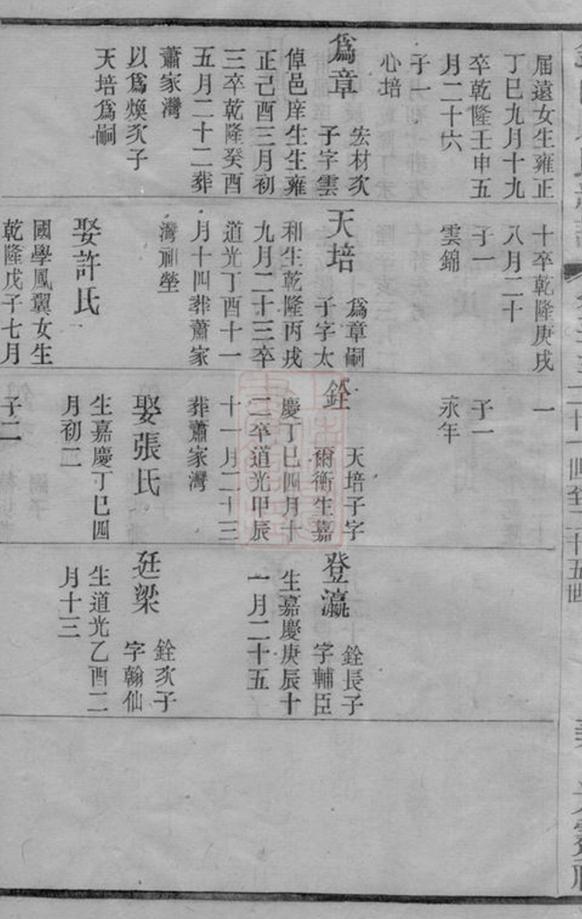 屆遠女生雍正
丁巳九月十九
卒乾隆壬申五
月二十六
子一
心培
為章
宏材次
子字雲
倬邑庠生生雍
正己酉三月初
三卒乾隆癸酉
五月二十二葬
蕭家灣
以為煥次子
天培為嗣
十卒乾隆庚戌
八月二十
子一
雲錦
天培
為章嗣
子字太
和生乾隆丙戌
九月二十三卒
道光丁酉十一
月十四葬蕭家
灣祔塋
娶許氏
國學鳳翼女生
乾隆戊子七月
一
子一
永年
銓
天培子字
爾衡生嘉
慶丁巳四月十
二卒道光甲辰
十一月二十三
葬蕭家灣
娶張氏
生嘉慶丁巳四
月初二
子二
登瀛
銓長子
字輔臣
生嘉慶庚辰十
一月二十五
廷梁
銓次子
字翰仙
生道光乙酉二
月十三